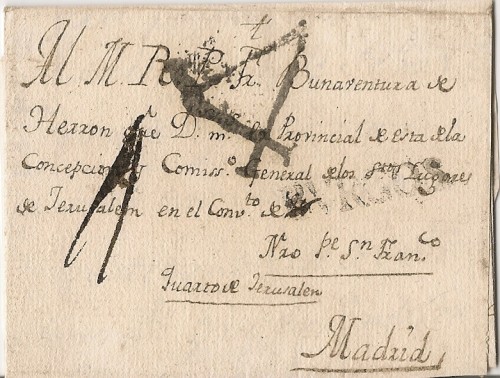 Al M. R. P. Fr. Buenaventura de
Herron que D. m.s a.s Provincial de esta de la
Concepcion y Comiss.o General de los S.tos Lugares
de Jerusalem en el Conv.to de
BURGOS
Nro Pe Sn Franco
Quarto de Jerusalen
Madrid